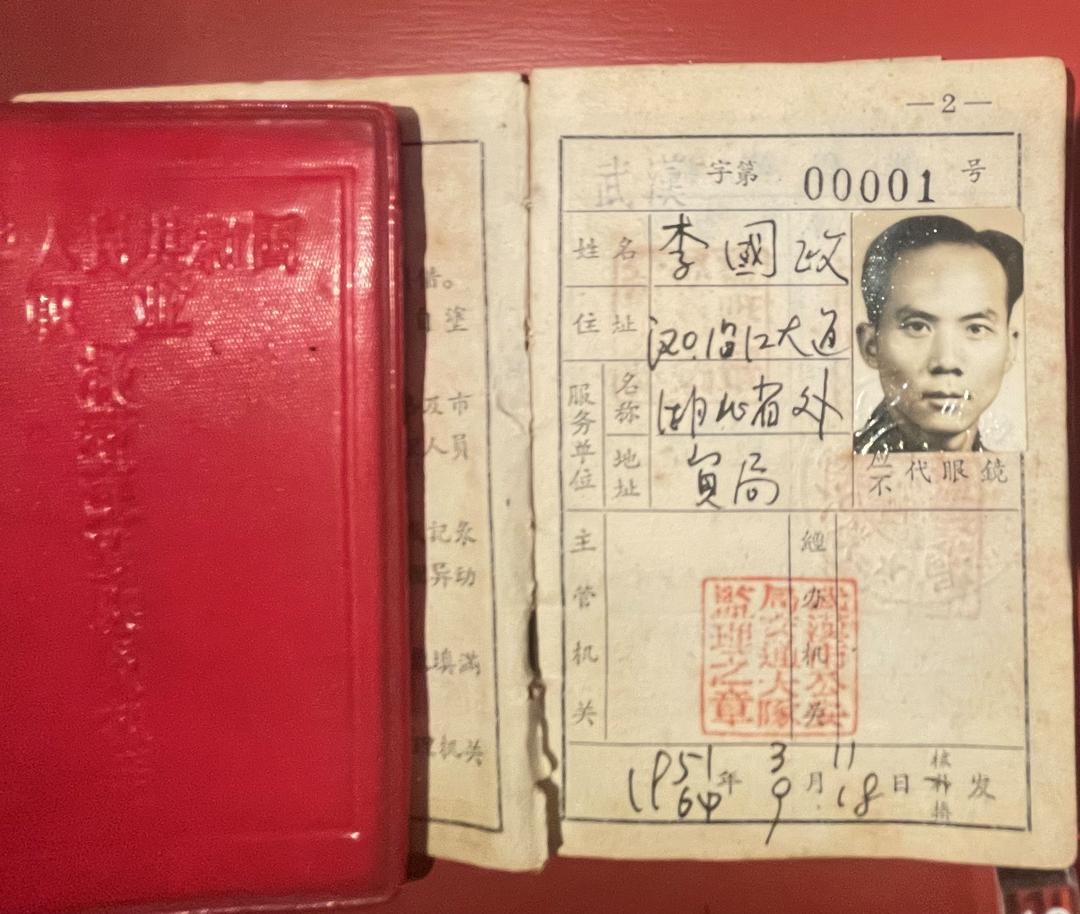 人民共和国
职业
借。
自塗
及市
人員
记录
异动
填满
机关
—2—
武漢字第 00001 号
姓名 李國政
住址 汉口沿江大道
服务单位 名称 湖北省外
地址 貿局
应不代眼鏡
主管机关
經办机关
武漢市公安
局交通大隊
監理之章
1951年3月11日
64 9 18
核补換发